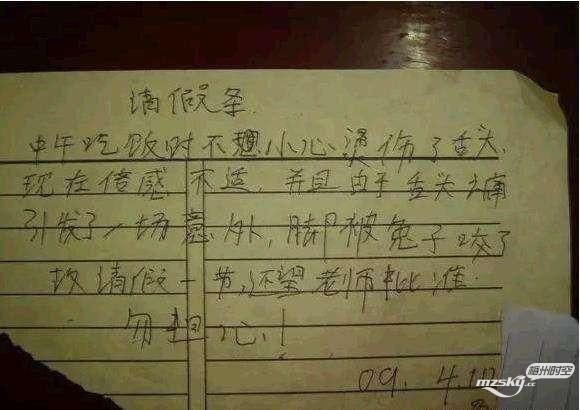 请假条
中午吃饭时不想小心烫伤了舌头,
现在倍感不适,并且由于舌头太痛
引发了一场意外,脚被兔子咬了
故请假一节,还望老师批准.
勿担心!
09. 4.10
梅州时空
mzsky.cc